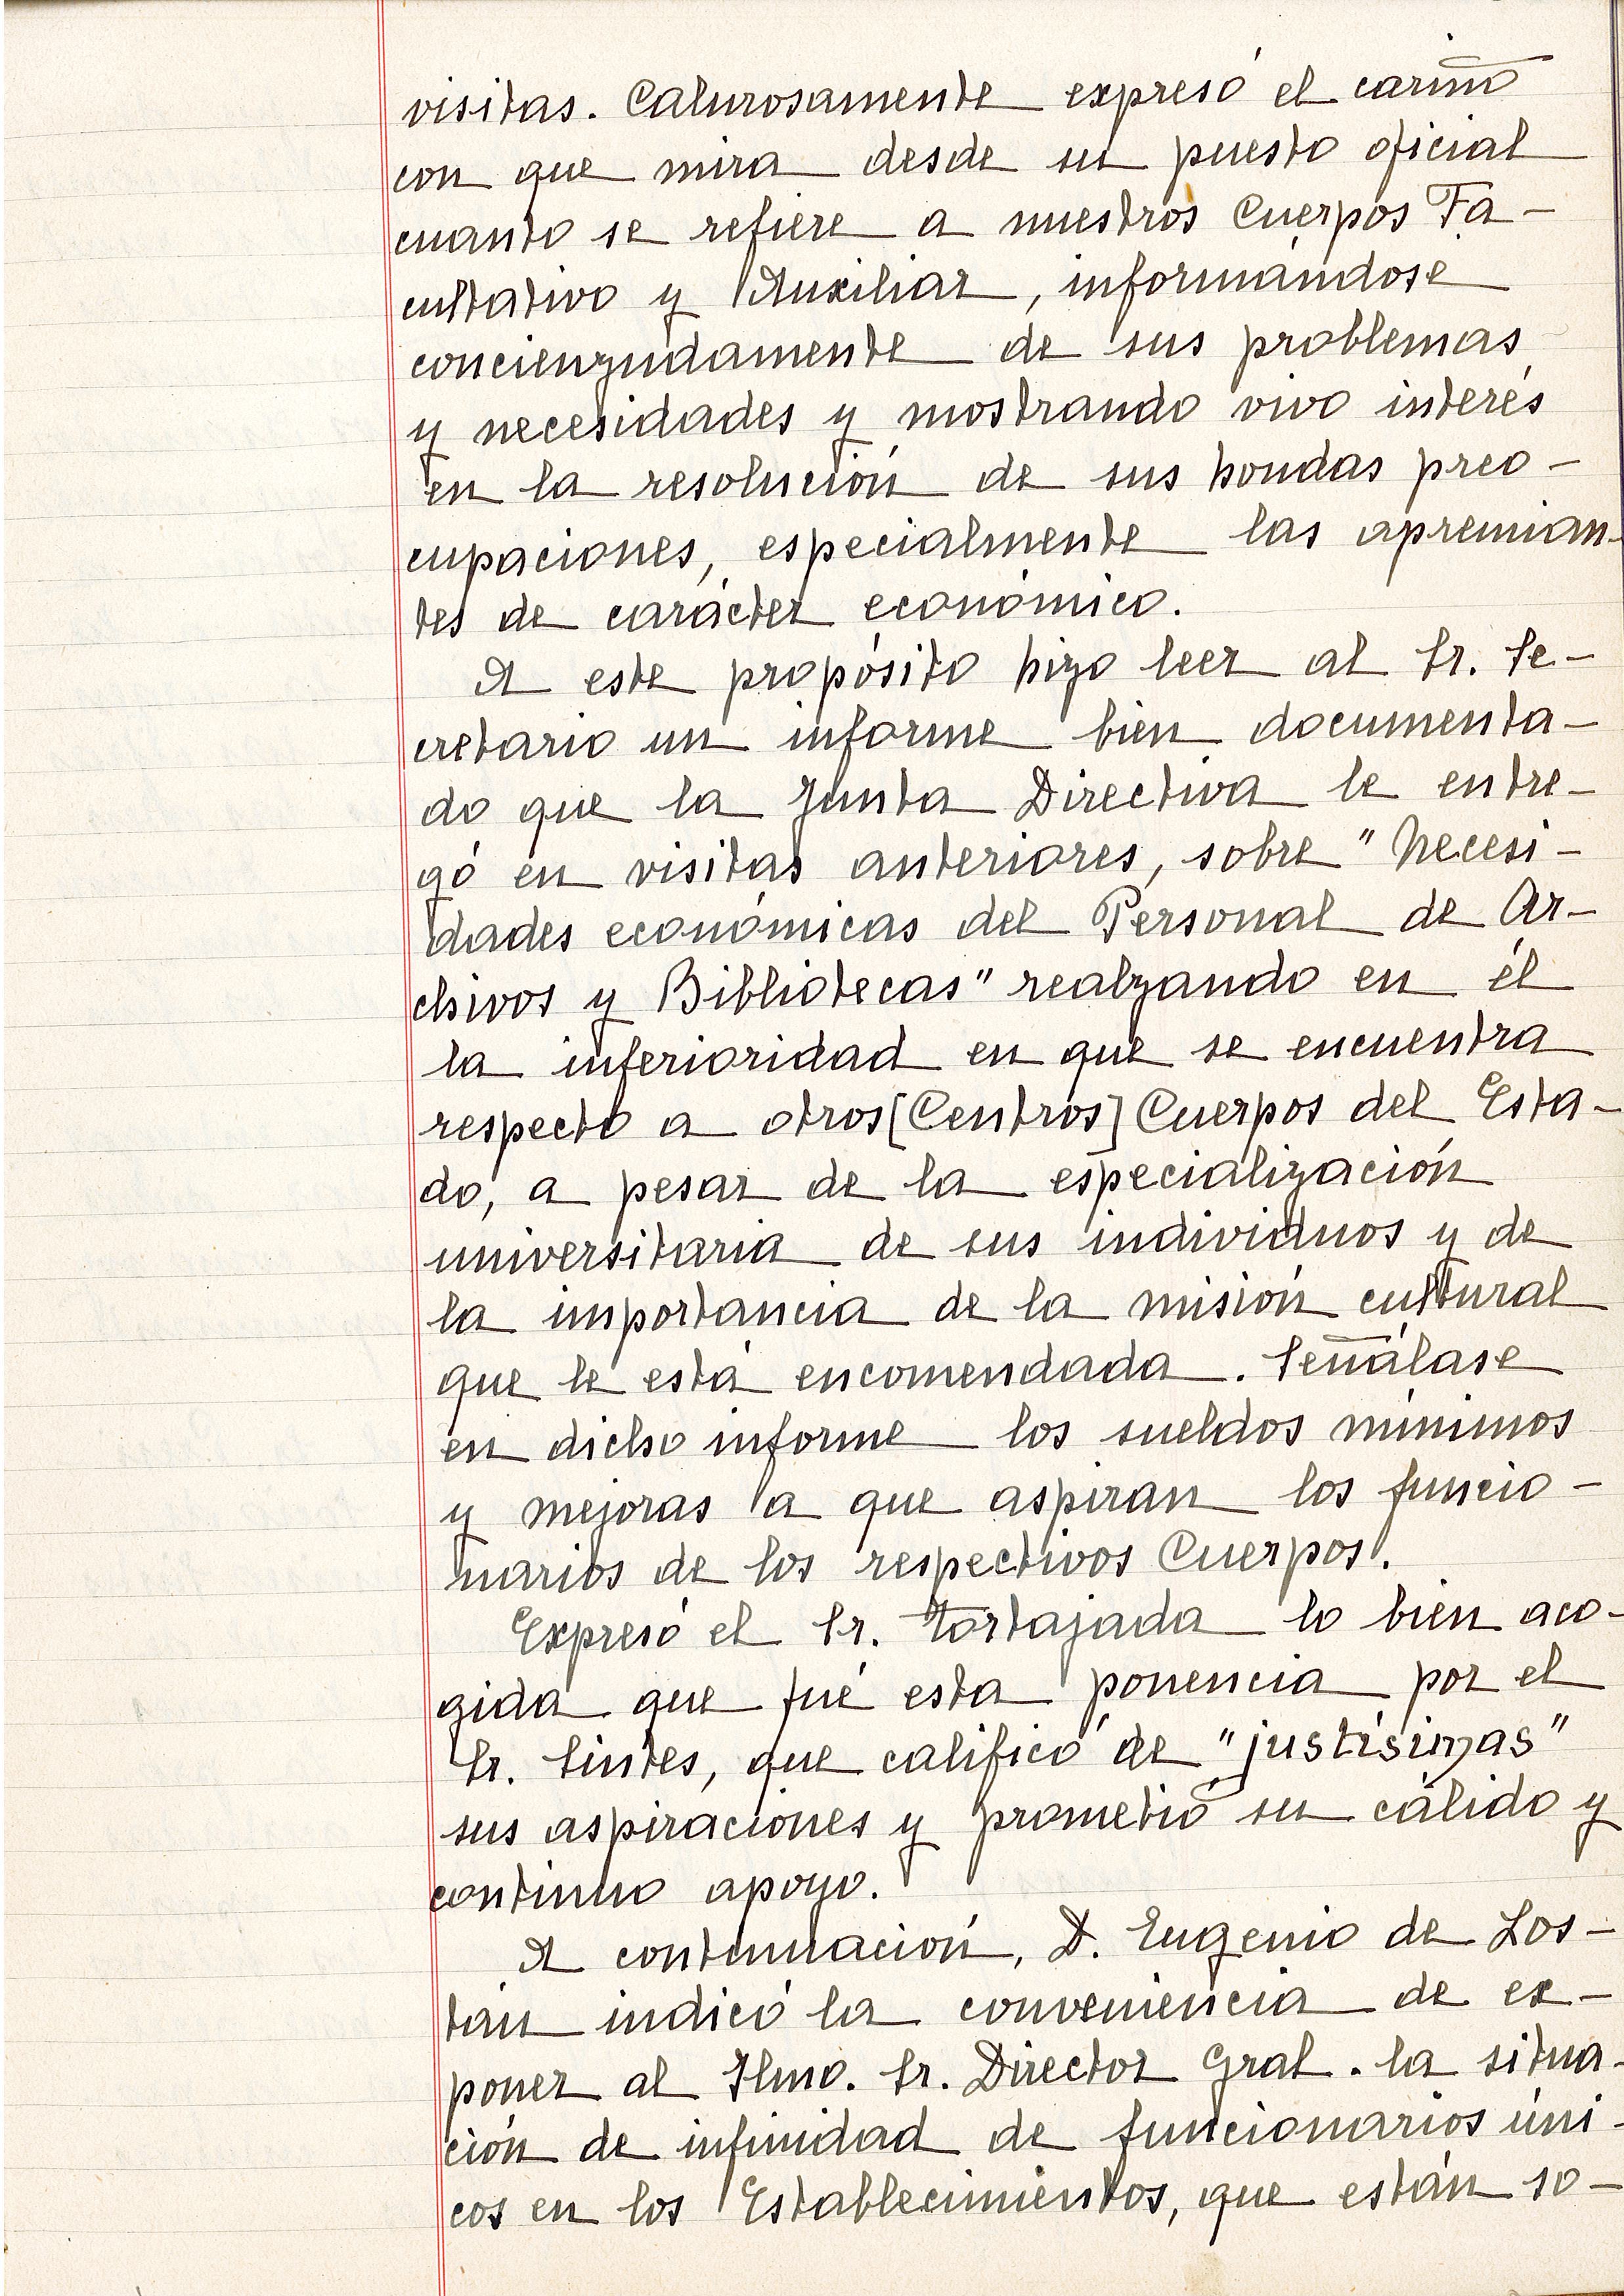 visitas. Calurosamente expresó el cariño
con que mira desde su puesto oficial
cuanto se refiere a nuestros Cuerpos Fa-
cultativo y Auxiliar, informándose
concienzudamente de sus problemas
y necesidades y mostrando vivo interés
en la resolución de sus hondas preo-
cupaciones, especialmente las apremian-
tes de carácter económico.
A este propósito hizo leer al Sr. Se-
cretario un informe bien documenta-
do que la Junta Directiva le entre-
gó en visitas anteriores, sobre "Necesi-
dades económicas del Personal de Ar-
chivos y Bibliotecas" realzando en él
la inferioridad en que se encuentra
respecto a otros [Centros] Cuerpos del Esta-
do, a pesar de la especialización
universitaria de sus individuos y de
la importancia de la misión cultural
que le está encomendada. Señálase
en dicho informe los sueldos mínimos
y mejoras a que aspiran los funcio-
narios de los respectivos Cuerpos.
Expresó el Sr. Tortajada lo bien aco-
gida que fué esta ponencia por el
Sr. Sintes, que calificó de "justísimas"
sus aspiraciones y prometió su cálido y
continuo apoyo.
A continuación, D. Eugenio de Los-
tán indicó la conveniencia de ex-
poner al Ilmo. Sr. Director Gral. la situa-
ción de infinidad de funcionarios úni-
cos en los Establecimientos, que están so-